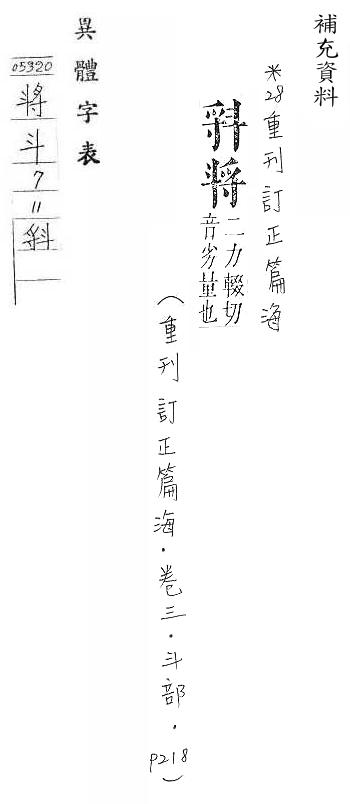 補充資料
※28重刊訂正篇海
二力輟切
音劣量也
(重刊訂正篇海・卷三・斗部・P218)
異體字表
05320
斗
7
11